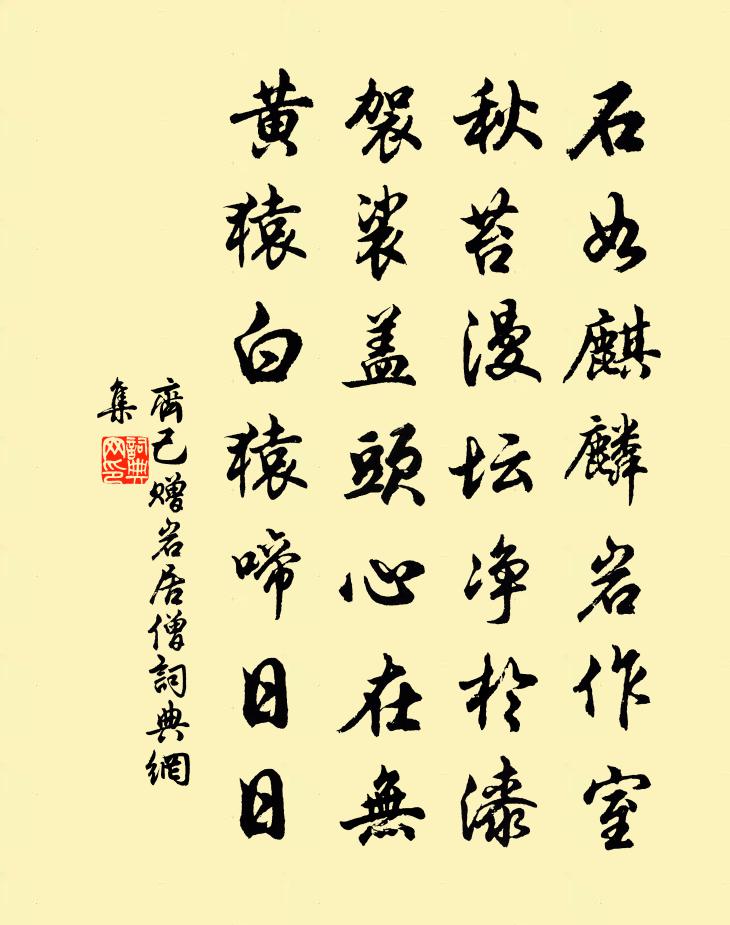 石如麒麟岩作室
秋苔漫坛净於漆
袈裟盖頭心在無
黄猿白猿啼日日
齊己赠岩居僧詞典網
集
詞典网印